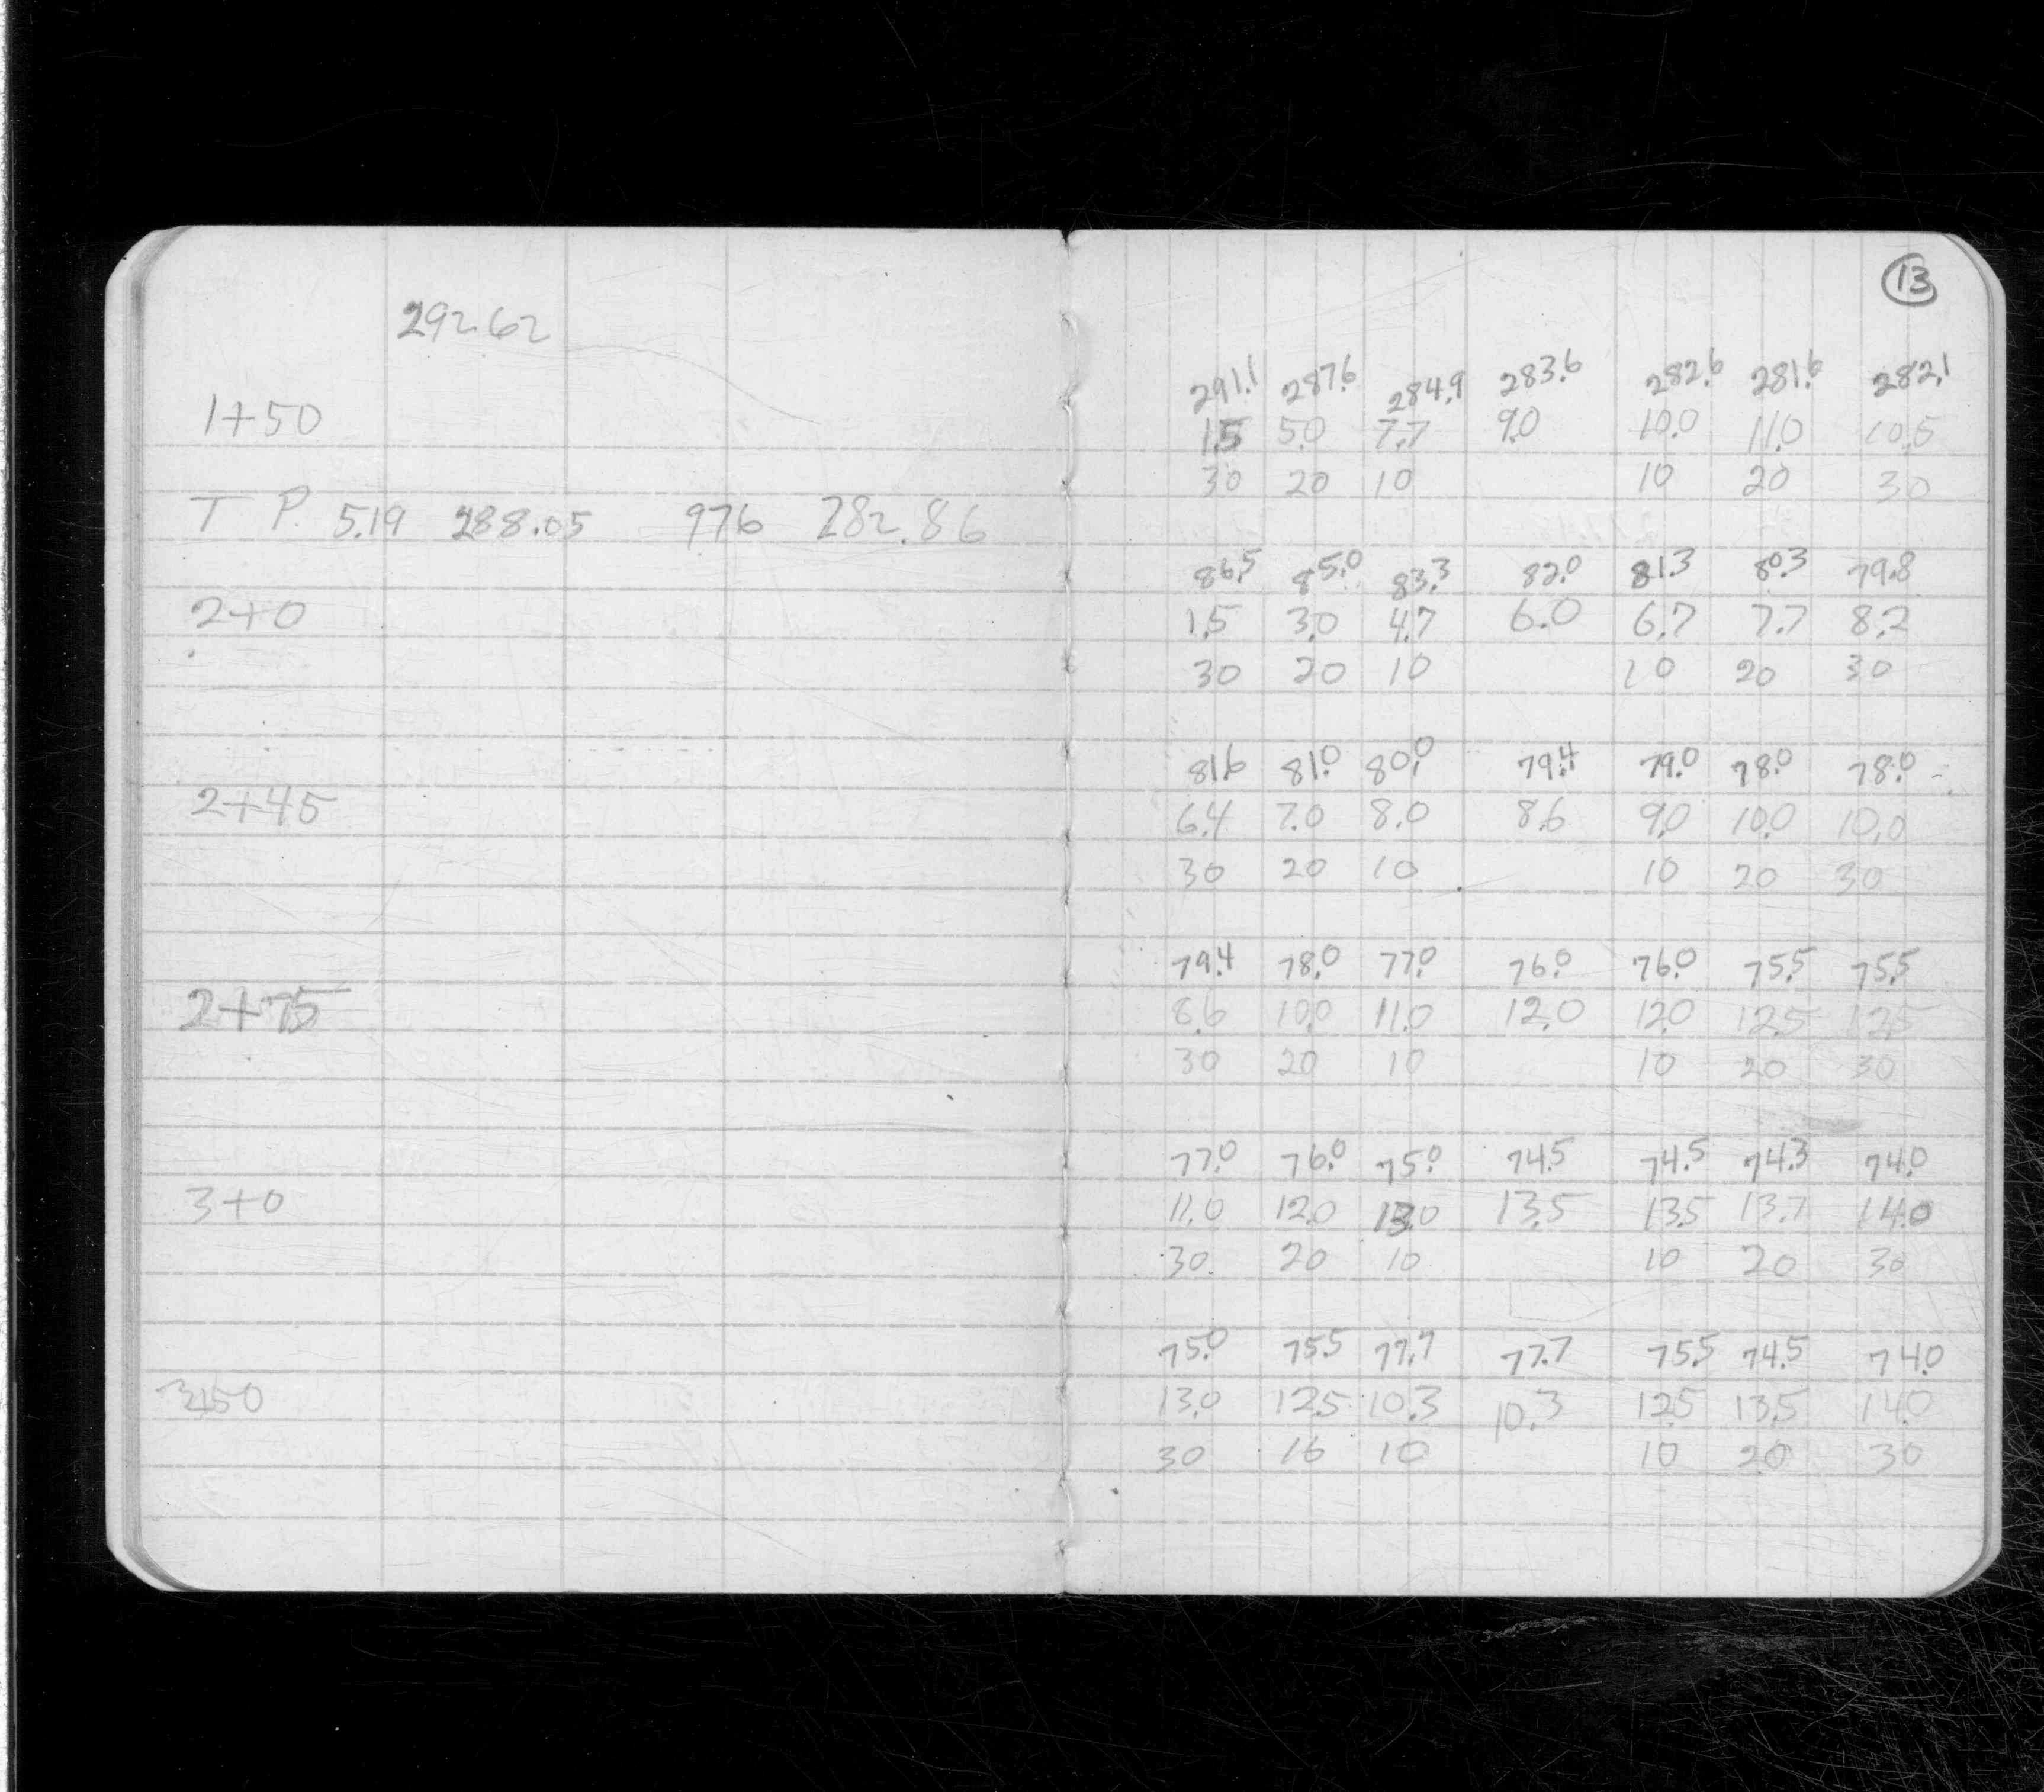 13
292.62
291.1 287.6 284.9 283.6 282.6 281.6 282.1
1+50 1.5 5.0 7.7 9.0 10.0 11.0 10.5
30 20 10 10 20 30
T P. 5.19 288.05 976 282.86
86.5 85.0 83.3 82.0 81.3 80.3 79.8
2+0 1.5 3.0 4.7 6.0 6.7 7.7 8.2
30 20 10 10 20 30
81.6 81.0 80.0 79.4 79.0 78.0 78.0
2+45 6.4 7.0 8.0 8.6 9.0 10.0 10.0
30 20 10 10 20 30
79.4 78.0 77.0 76.0 76.0 75.5 75.5
2+75 8.6 10.0 11.0 12.0 12.0 12.5 12.5
30 20 10 10 20 30
77.0 76.0 75.0 74.5 74.5 74.3 74.0
3+0 11.0 12.0 13.0 13.5 13.5 13.7 14.0
30 20 10 10 20 30
75.0 75.5 77.7 77.7 75.5 74.5 74.0
3+50 13.0 12.5 10.3 10.3 12.5 13.5 14.0
30 16 10 10 20 30